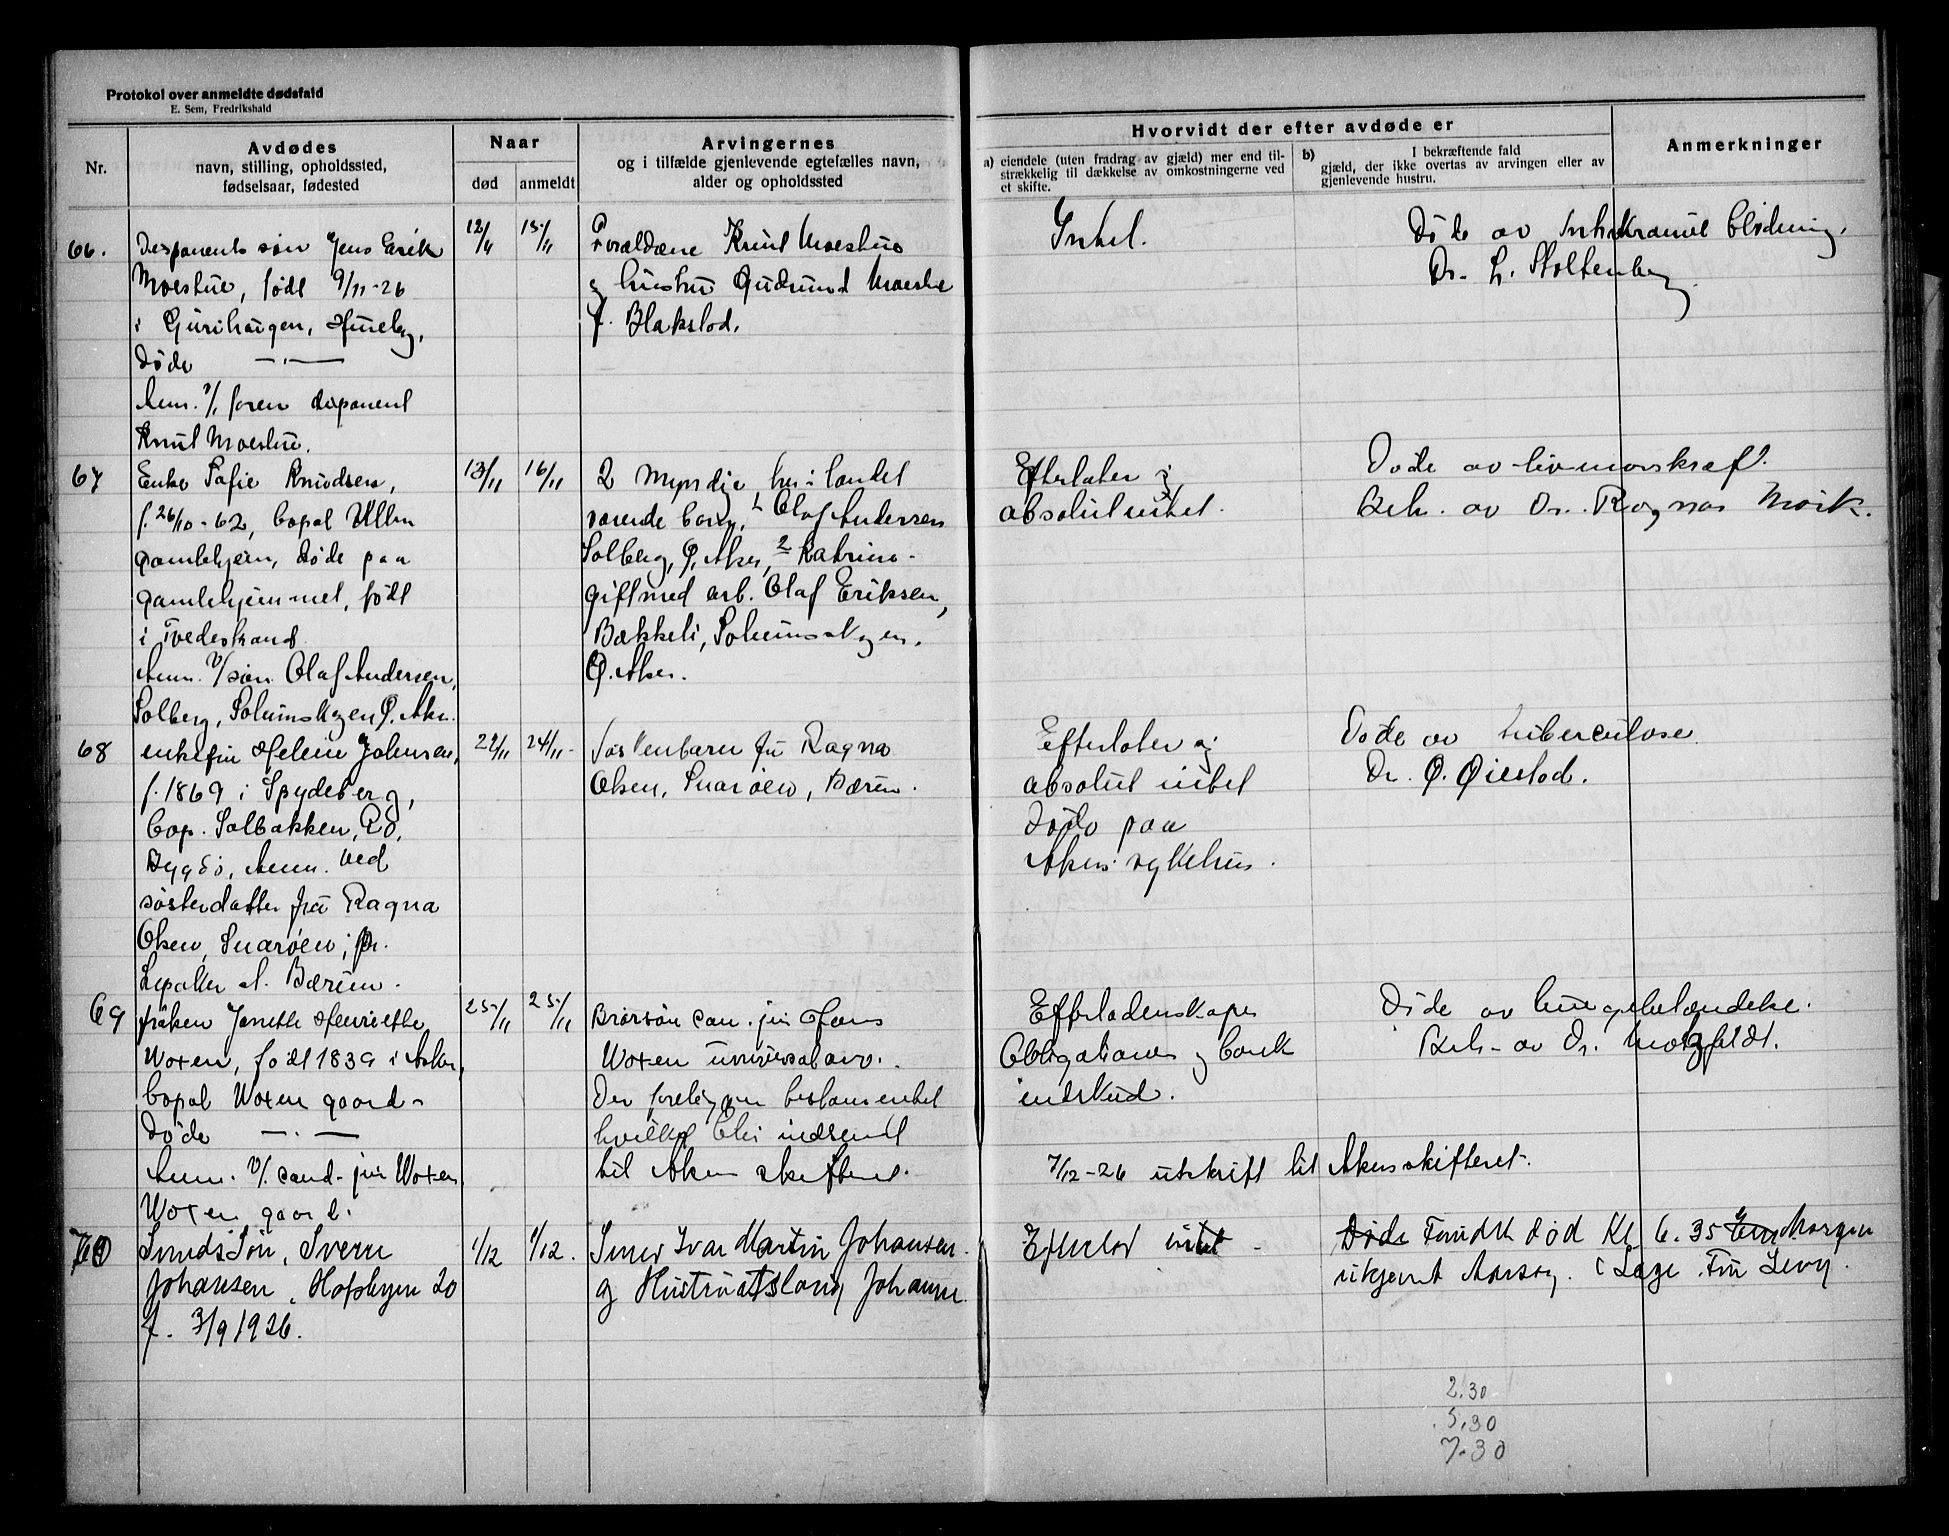 Protokol over anmeldte dødsfald
E. Sem, Fredrikshald
Nr.
Avdødes
navn, stilling, opholdssted,
fødselsaar, fødested
Naar
død
anmeldt
Arvingernes
og i tilfælde gjenlevende egtefælles navn,
alder og opholdssted
Hvorvidt der efter avdøde er
a) eiendele (uten fradrag av gjæld) mer end til-
strækkelig til dækkelse av omkostningerne ved
et skifte.
b) I bekræftende fald
gjæld, der ikke overtas av arvingen eller av
gjenlevende hustru.
Anmerkninger
66.
Disponents søn Jens Erik
Moestue, født 9/11-26
i Huseby,
Døde —·—
Anm. v/ faren disponent
Knut Moestue.
12/11
15/11
Forældrene Knut Moestue
og hustru Gudrund Moestue
f. Blakstod.
Intet.
Døde av Intrakraniel blødning.
Dr. L. Stoltenberg
67
Enke Sofie Knudsen,
f. 26/10-62, bopal Ullern
gamlehjem, døde paa
gamlehjemmet, født
i Tvedestrand
Anm. v/ søn Olaf Andersen,
Solberg, Solumskogen Ø. Aker.
13/11
16/11
2 myndige her i landet
værende barn, 1 Olaf Andersen
Solberg, Ø. Aker, 2 Katrine
gift med arb. Olaf Eriksen,
Bækkeli, Solumskogen,
Ø. Aker.
Efterlater sig
absolut intet.
Døde av livmorskræft.
Beh. av Dr. Ragnar Mørk.
68
enkefru Helene Johnsen,
f. 1869 i Spydeberg,
bop. Solbakken,
Bygdø, Anm. ved
søsterdatter fru Ragna
Olsen, Snarøen, pr.
Lysaker st. Bærum.
22/11
24/11
Søskenbarn fru Ragna
Olsen, Snarøen, Bærum.
Efterlater sig
absolut intet
Døde paa
Akers sykehus.
Døde av tuberculose
Dr. Ø. Øiestad.
69
frøken Janette Henriette
Woxen, født 1839 i Asker,
bopal Woxen gaard
Døde —·—
Anm. v/ cand. jur Woxen
Woxen gaard.
25/11
25/11
Brorsøn can. jur Hans
Woxen universalarv.
Der foreligger testamentet
hvilket blir indsendt
til Aker skifteret.
Efterladenskaper
Obligationer og bank
indskud.
Døde av lungebetændelse.
Beh. av Dr.
7/12-26 utskrift til Akers skifteret.
70
Smeds Søn, Sverre
Johansen, 20
f. 3/9 1926.
1/12
1/12.
Smed Ivar Martin Johansen
og Hustru Johansen
Efterlod intet
Døde Fundet død Kl 6.35 Em Morgen
ukjent Aarsag. Læge Levy.
2.30
5.30
7.30